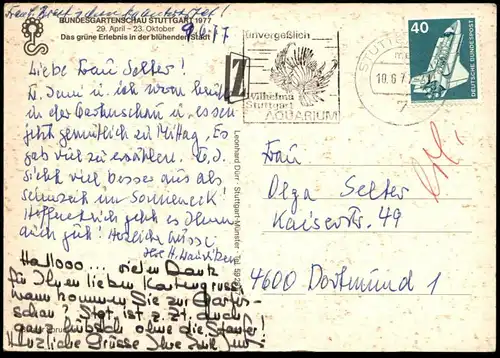 BUNDESGARTENSCHAU STUTTGART 1977
29. April - 23. Oktober
Das grüne Erlebnis in der blühenden Stadt
9.6.77
Liebe Frau Selter!
u. ich waren heute
in der Gartenschau u. essen
jetzt gemütlich zu Mittag. Es
gab viel zu erzählen.
sieht viel besser aus als
seinerzeit im Sonneneck!
Hoffentlich geht es Ihnen
auch gut! Herzliche Grüsse
Ihre H.
Hallooo.... vielen Dank
für Ihren lieben Kartengruss
wann kommen Sie zur Garten-
schau? Stgt. ist z. Zt. auch
ganz hübsch ohne die Staufer!
Herzliche Grüsse Ihre
Leonhard Dürr Stuttgart-Münster
unvergeßlich
Wilhelma
Stuttgart
AQUARIUM
Z
STUTTGART
10.6.7
7
40
DEUTSCHE BUNDESPOST
Frau
Olga Selter
Kaiserstr. 49
4600 Dortmund 1